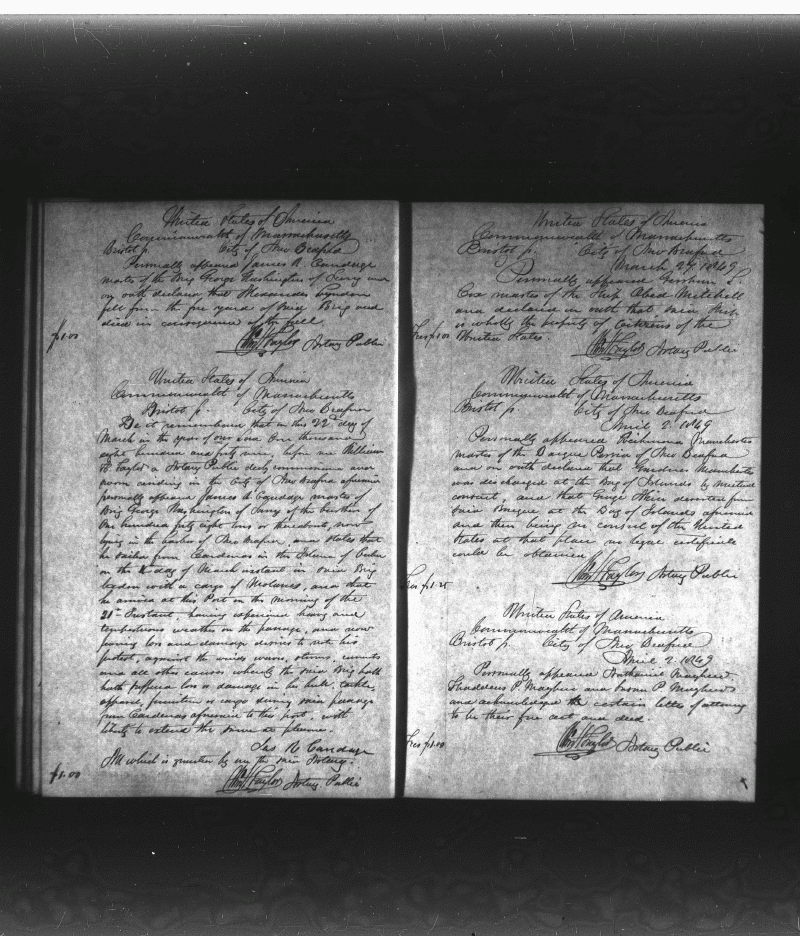 United States of America
Commonwealth of Massachusetts
Bristol ss. City of New Bedford
Personally appeared James R. Candage
master of the Brig George Washington of and
on oath declared that Alexander
fell from the fore yard of said Brig and
died in consequence of the fall
$1.00
Wm H Taylor Notary Public
United States of America
Commonwealth of Massachusetts
Bristol ss. City of New Bedford
Be it remembered that on this 22d day of
March in the year of our Lord One thousand
eight hundred and forty nine, before me William
H. Taylor a Notary Public duly commissioned and
sworn residing in the City of New Bedford aforesaid
personally appeared James R Candage master of
Brig George Washington of of the burthen of
One hundred fifty eight tons or thereabouts, now
lying in the harbor of New Bedford, and states that
he sailed from Cardenas in the Island of Cuba
on the day of March instant in said Brig
laden with a cargo of Molasses, and that
he arrived at this Port on the morning of the
21st Instant, having experienced heavy and
tempestuous weather on the passage, and now
fearing loss and damage desires to note his
protest, against the winds waves, storms, currents
and all other causes whereby the said Brig hath
hath suffered loss or damage in her hull, tackle,
apparel, furniture or cargo during said passage
from Cardenas aforesaid to this port, with
liberty to extend the same at pleasure.
Jas R Candage
All which is granted by me the said Notary.
$1.00
Wm H Taylor Notary Public
United States of America
Commonwealth of Massachusetts
Bristol ss. City of New Bedford
March 27, 1849
Personally appeared Gershom
Cox master of the Ship Abed Mitchell
and declared on oath that said Ship
is wholly the property of Citizens of the
Fees $1.00 United States.
Wm H Taylor Notary Public
United States of America
Commonwealth of Massachusetts
Bristol ss. City of New Bedford
April 2. 1849
Personally appeared Richmond Manchester
master of the Barque Persia of New Bedford
and on oath declared that Gardner Manchester
was discharged at the Bay of Islands by mutual
consent, and that George deserted from
said Barque at the Bay of Islands aforesaid
and there being no consul of the United
States at that place no legal certificate
could be obtained
Wm H Taylor Notary Public
Fees $1.25
United States of America
Commonwealth of Massachusetts
Bristol ss. City of New Bedford
April 2. 1849
Personally appeared Nathaniel
Thaddeus P. and Susan P.
and acknowledged the certain letter of attorney
to be their free act and deed.
Fees $1.00
Wm H Taylor Notary Public